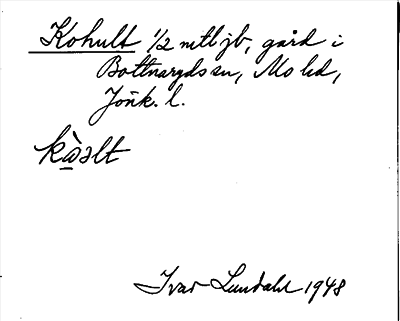 Kohult 1/2 mtl jb, gård i
Bottnaryds sn, Mo hd,
Jönk. l.
kὰəlt
Ivar Lundahl 1948